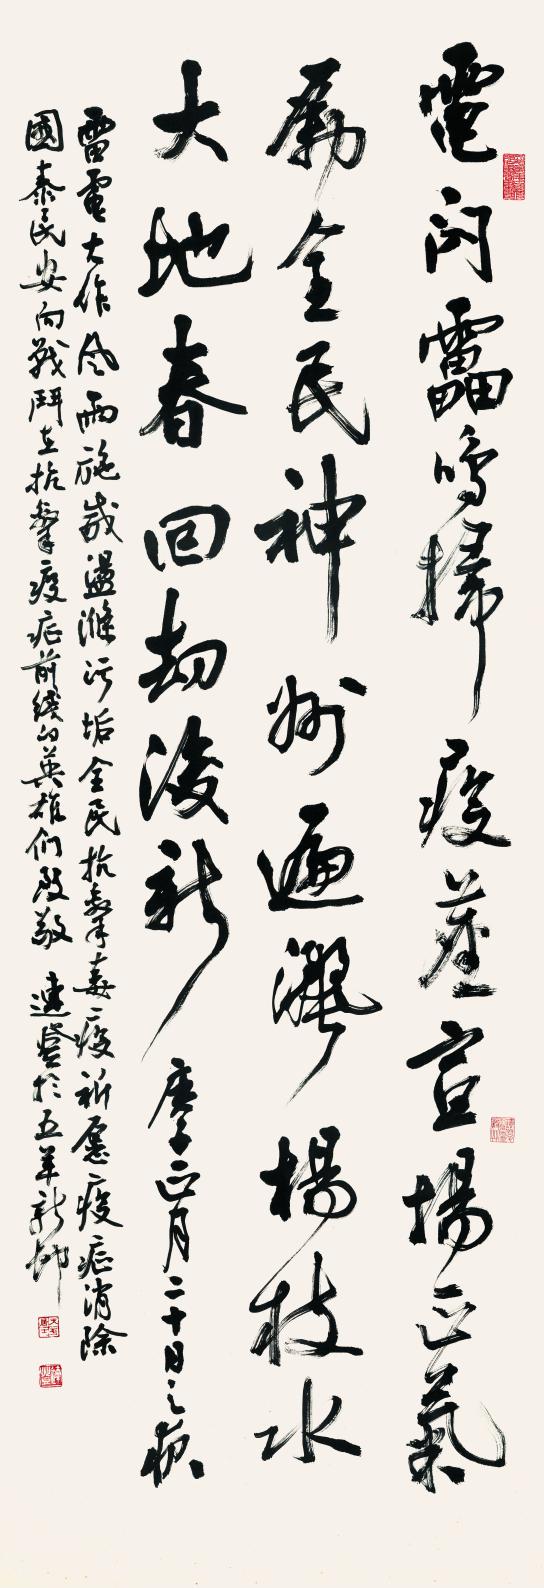 電闪雷鳴掃疫塵宣揚正氣
勵全民神州遍灑楊枝水
大地春回劫後新 庚子正月二十日之夜
雷電大作风雨施威盪滌污垢全民抗擊毒疫祈愿疫症消除
國泰民安向戰鬥在抗擊疫症前线的英雄们致敬 連登於五羊新邨